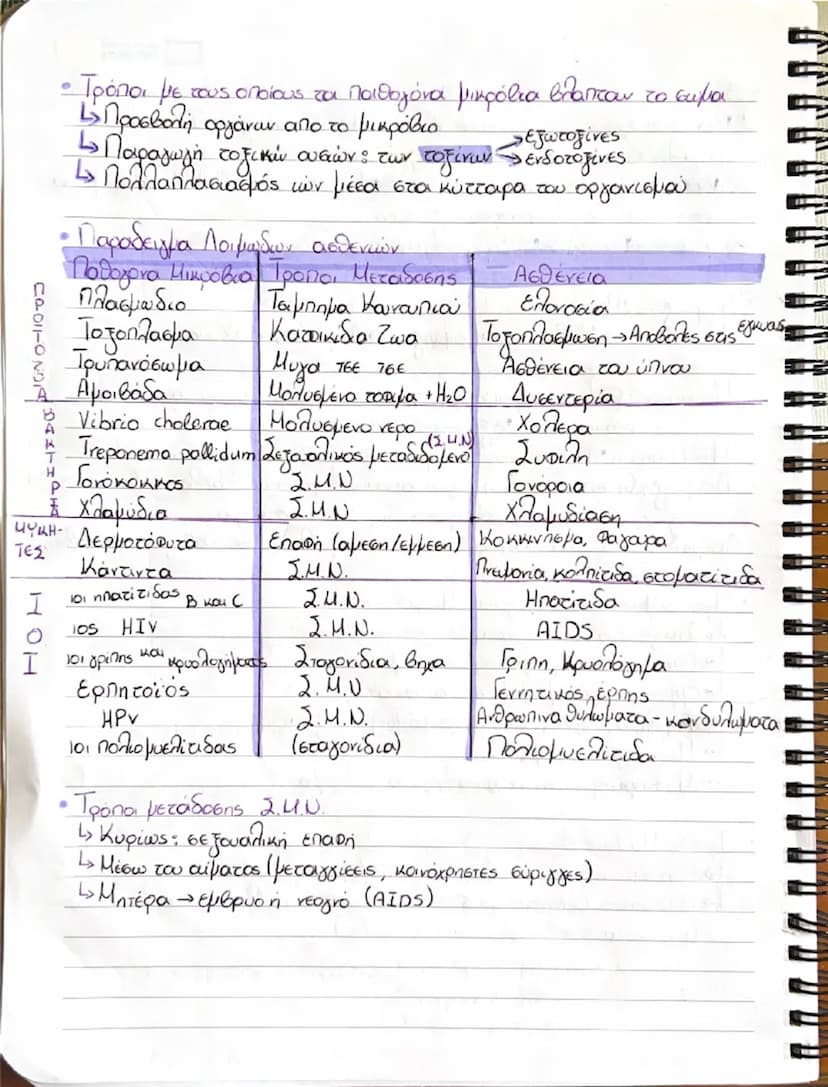 • Τρόποι με τους οποίους τα παθογόνα μικρόβια βλάπτουν το σώμα
↳ Προσβολή οργάνων απο το μικρόβιο
↳ Παραγωγή τοξικών ουσιών: των τοξίνων → εξωτοξίνες
→ ενδοτοξίνες
↳ Πολλαπλασιασμός ιών μέσα στα κύτταρα του οργανισμού
• Παραδειγμα Λοιμωδών ασθενιών
Παθογονα Μικρόβια Τροποι Μεταδοσης Ασθένεια
ΠΡΩΤΟΖΩΑ
Πλασμωδιο Τσιμπημα Κουνουπιού Ελονοσία
Τοξοπλασμα Κατοικιδια Ζωα Τοξοπλασμωση → Αποβολές στις εγκυες
Τρυπανόσωμα Μυγα τσε τσε Ασθένεια του ύπνου
Αμοιβάδα Μολυσμένα τροφιμα + H2O Δυσεντερία
ΒΑΚΤΗΡΙΑ
Vibrio cholerae Μολυσμενο νερο Χολερα
Treponema pallidum Σεξουαλικός μεταδιδομενο (Σ.Μ.Ν) Συφιλη
Γονόκοκκος Σ.Μ.Ν Γονόροια
Χλαμύδια Σ.Μ.Ν Χλαμυδίαση
ΜΥΚΗ-
ΤΕΣ
Δερματόφυτα Επαφή (αμεση/εμμεση) Κοκκινησμα, Φαγαρα
Κάντιντα Σ.Μ.Ν. Πνευμονία, κολπίτιδα, στοματίτιδα
ΙΟΙ
ιοι ηπατίτιδας B και C Σ.Μ.Ν. Ηπατίτιδα
ιος HIV Σ.Μ.Ν. AIDS
ιοι γρίπης και κρυολογήματος Σταγονίδια, βηχα Γριπη, Κρυολόγημα
Ερπητοϊός Σ.Μ.Ν Γεννητικός έρπης
HPV Σ.Μ.Ν. Ανθρωπινα θυλωματα - κονδυλωματα
ιοι πολιομυελιτιδας (σταγονίδια) Πολιομυελιτιδα
• Τρόποι μετάδοσης Σ.Μ.Ν.
↳ Κυρίως: σεξουαλική επαφή
↳ Μέσω του αίματος (μεταγγίσεις, κοινόχρηστες σύριγγες)
↳ Μητέρα → εμβρυο ή νεογνό (AIDS)